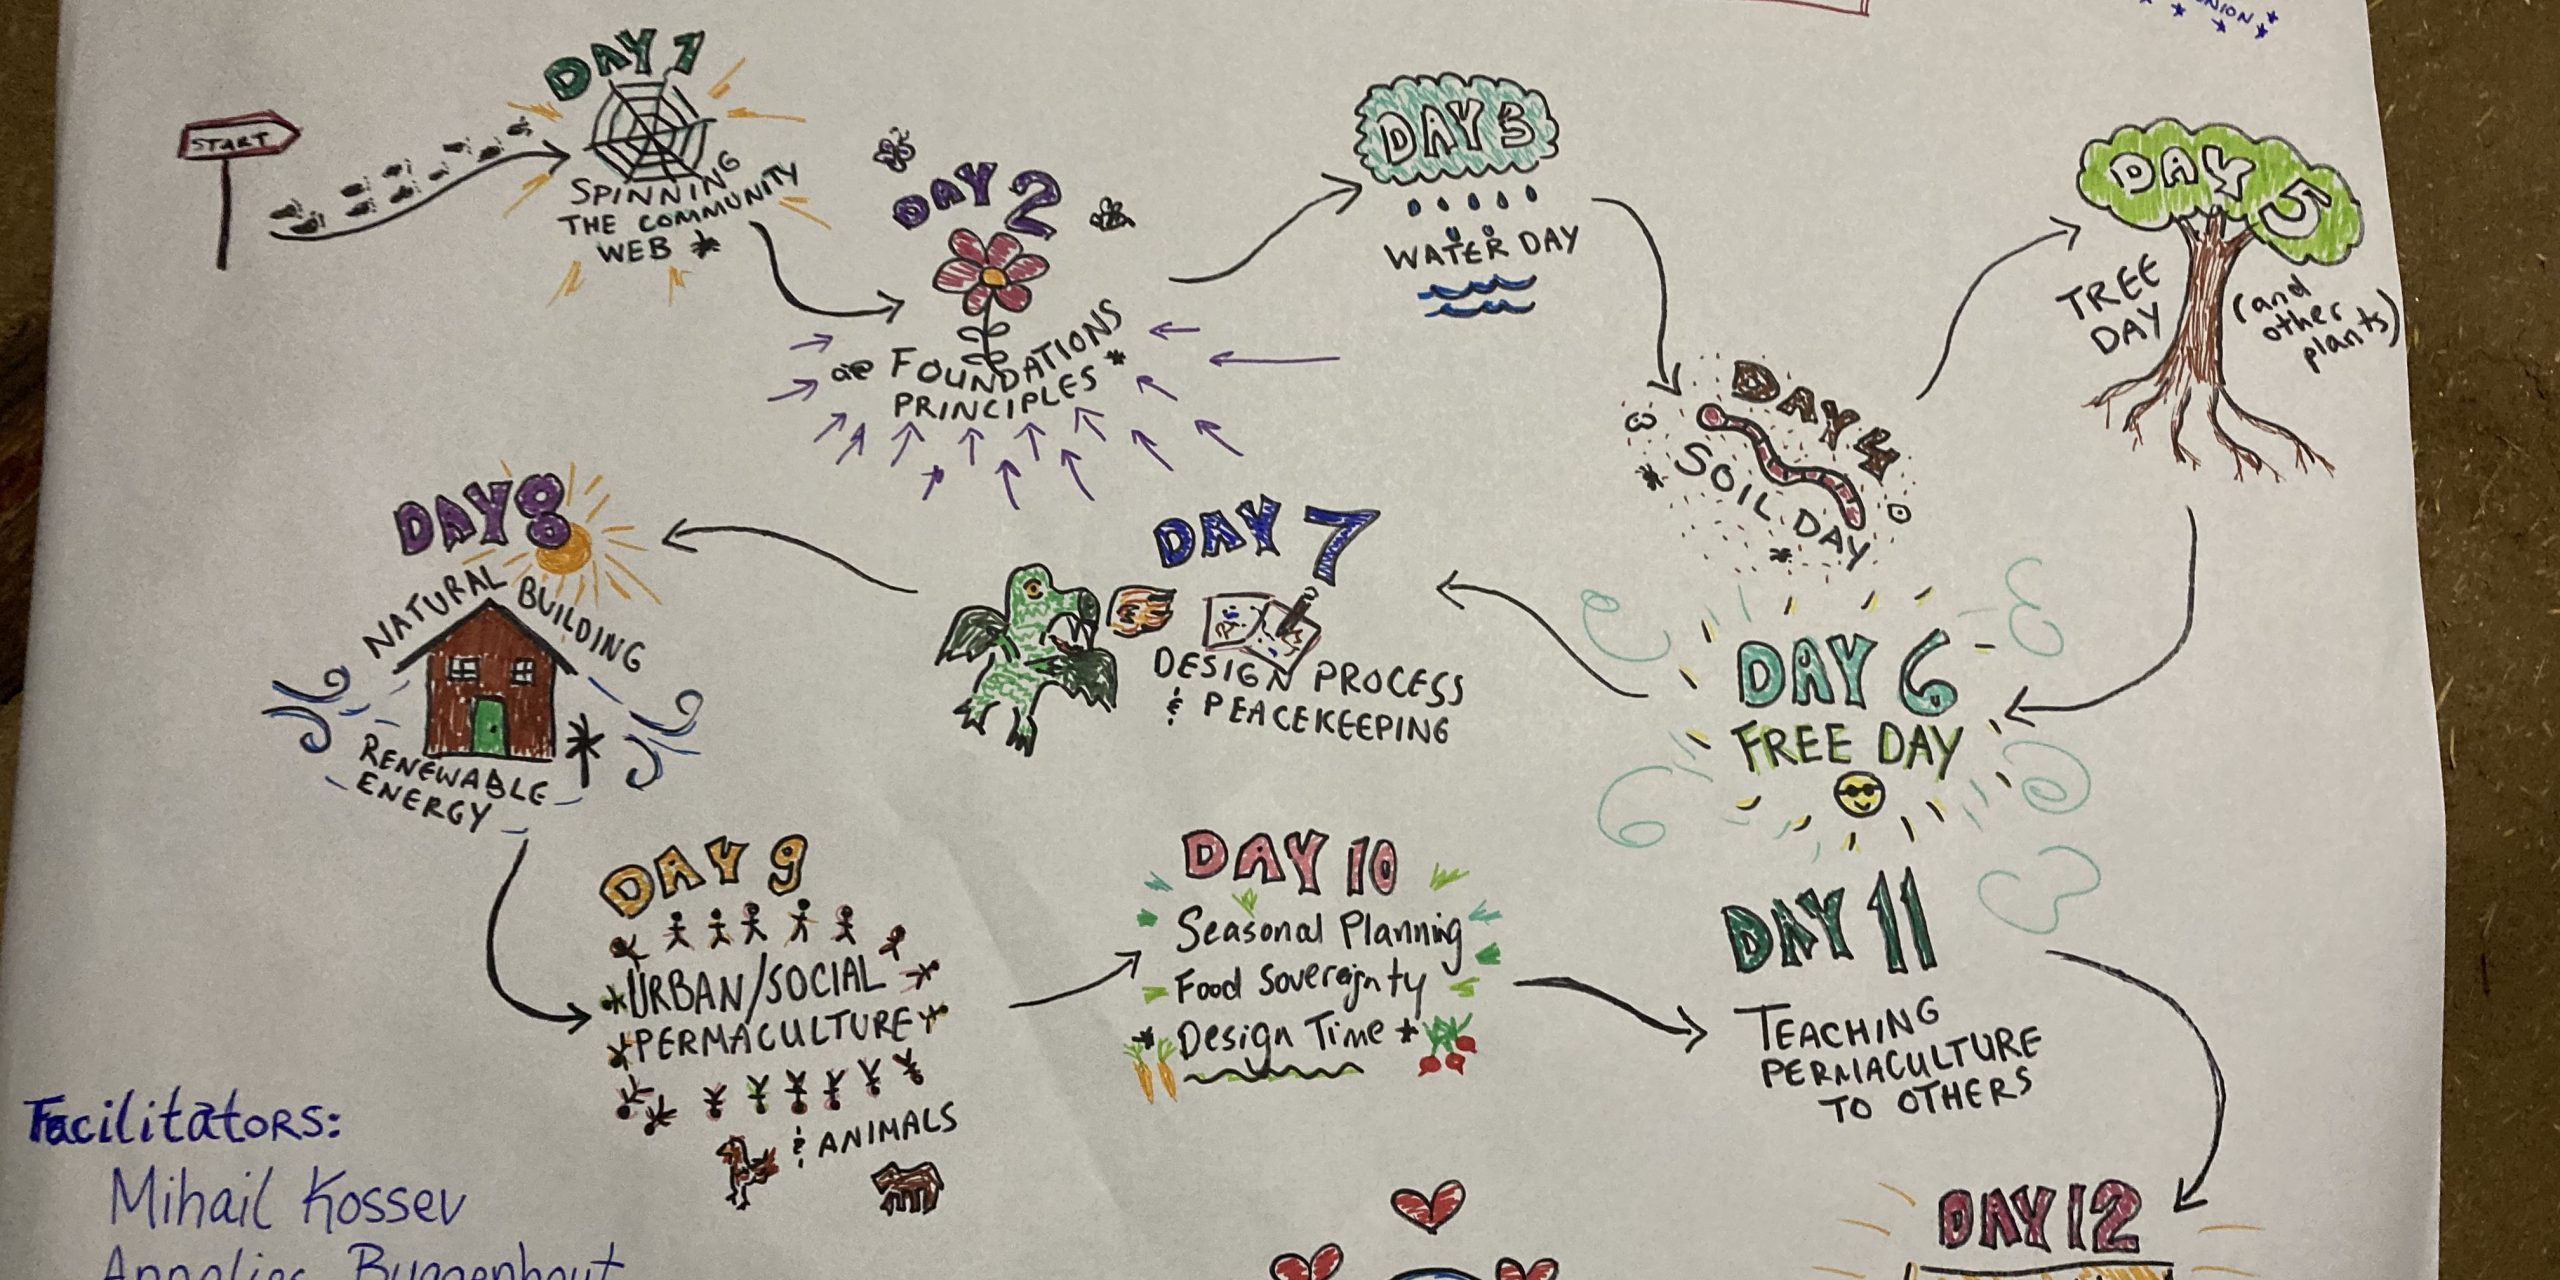 UNION
START
DAY 1
SPINNING
THE COMMUNITY
WEB *
DAY 2
FOUNDATIONS
PRINCIPLES *
DAY 3
WATER DAY
DAY 4
* SOIL DAY
DAY 5
TREE
DAY
(and
other
plants)
DAY 6
FREE DAY
DAY 7
DESIGN PROCESS
& PEACEKEEPING
DAY 8
NATURAL BUILDING
RENEWABLE
ENERGY
DAY 9
URBAN/SOCIAL
PERMACULTURE
& ANIMALS
DAY 10
Seasonal Planning
Food Sovereignty
* Design Time *
DAY 11
TEACHING
PERMACULTURE
TO OTHERS
DAY 12
Facilitators:
Mihail Kossev
Annelies Buggenhout